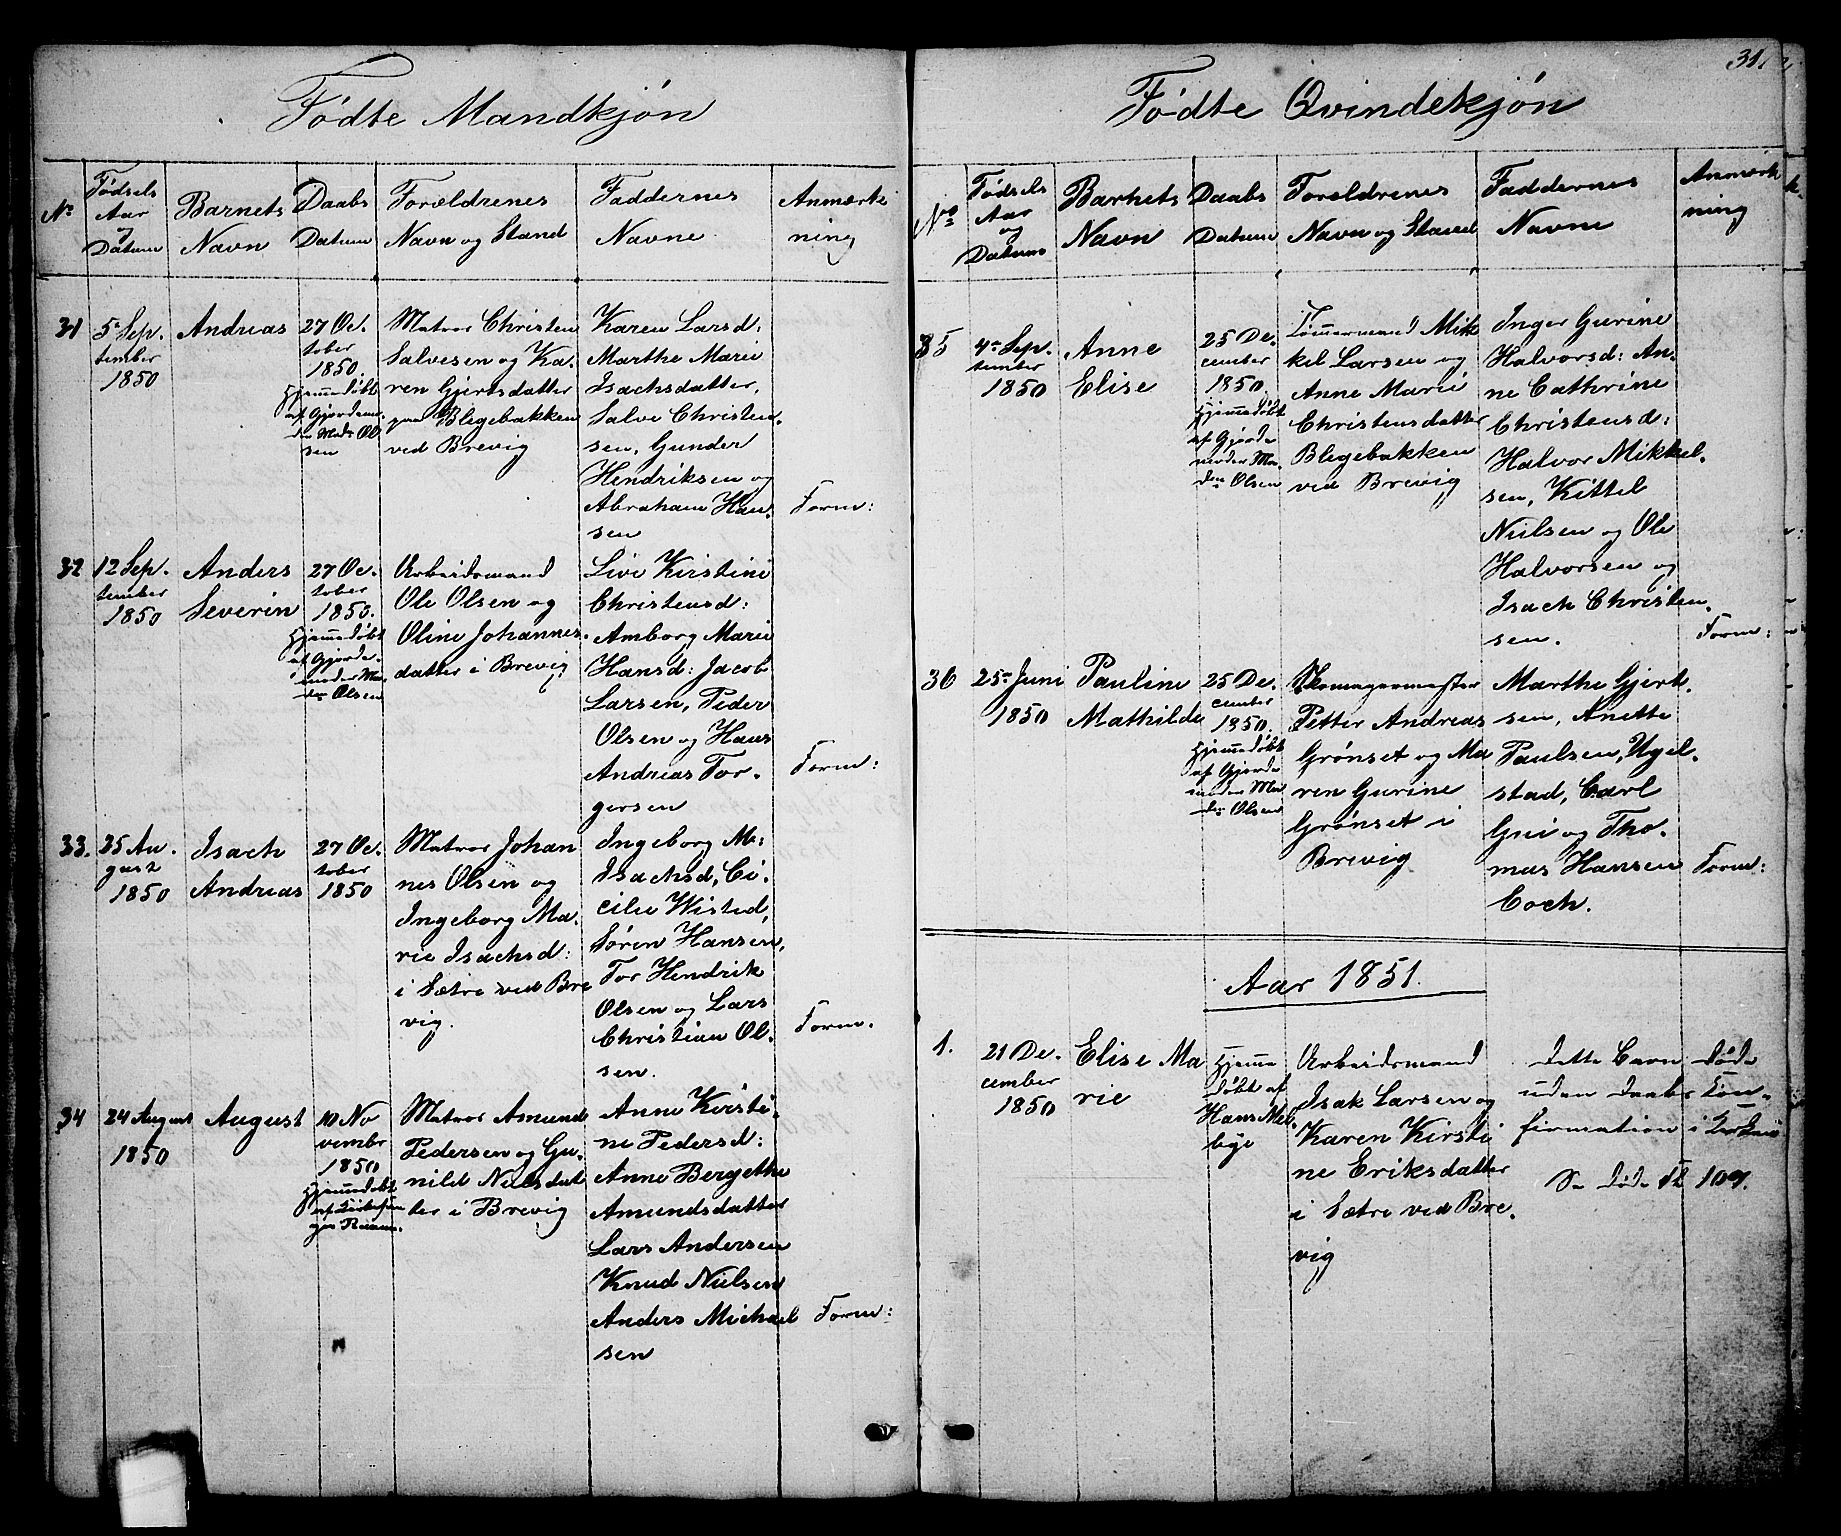 Fødte Mandkjøn
No
Fødsels
Aar
og
Datum
Barnets
Navn
Daabs
Datum
Forældrenes
Navn og Stand
Faddernes
Navne
Anmærk
ning
31
5te Sep.
tember
1850
Andreas
27 Oc.
tober
1850.
Hjemmedøbt
af Gjordemo
der Mad. Ol
sen
Matros Christen
Salvesen og Ka.
ren Gjertsdatter
paa Blegebakken
ved Brevig
Karen Larsd:
Marthe Marie
Isachsdatter,
Salve Christen.
sen, Gunder
Hendriksen og
Abraham Han.
sen
Form:
32
12 Sep.
tember
1850
Anders
Severin
27 Oc.
tober
1850.
Hjemmedøbt
af Gjorde.
moder Ma.
de Olsen
Arbeidsmand
Ole Olsen og
Oline Johannes.
datter i Brevig
Live Kirstine
Christensd:
Amborg Marie
Hansd: Jacob
Larsen, Peder
Olsen og Hans
Andreas Tor.
gersen
Form:
33.
25 Au.
gust
1850
Isach
Andreas
27 Oc.
tober
1850
Matros Johan
nes Olsen og
Ingeborg Ma.
rie Isachsd:
i Sætre ved Bre
vig.
Ingeborg M:
Isachsd, Ci.
cilie Wisted,
Søren Hansen,
Tor Hendrik
Olsen og Lars
Christian Ol.
sen.
Form.
34
24 August
1850
August
10 No
vember
1850
Hjemmedøbt
af
Matros Amund
Pedersen og Gu.
nild Nielsdat
ter i Brevig
Anne Kirsti.
ne Pedersd:
Anne Bergethe
Amundsdatter
Lars Andersen
Knud Nielsen
Anders Michael
sen
Form:
31.
Fødte Qvindekjøn
No
Fødsels
Aar
og
Datum
Barnets
Navn
Daabs
Datum
Forældrenes
Navn og Stand
Faddernes
Navne
Anmærk
ning
35
4te Sep.
tember
1850
Anne
Elise
25 De
cember
1850.
Hjemmedøbt
af Gjorde
moder Ma.
dm Olsen
Tømmermand Mik
kel Larsen og
Anne Marie
Christensdatter
Blegebakken
ved Brevig
Inger Gurine
Halvorsd: An.
ne Cathrine
Christensd:
Halvor Mikkel.
sen, Kittel
Nielsen og Ole
Halvorsen og
Isach Christen.
sen.
Form:
36
25de Juni
1850
Pauline
Mathilde
25 De.
cember
1850.
Hjemmedøbt
af Gjorde
moder Ma
dm Olsen
Skomagermester
Petter Andreas
Grønset og Ma
ren Gurine
Grønset i
Brevig
Marthe Gjert.
sen, Anette
Paulsen, Ugel.
stad, Carl
Gui og Tho.
mas Hansen
Coch.
Form:
Aar 1851.
1.
21 De.
cember
1850
Elise Ma
rie
Hjemme
døbt af
Hans Mel.
bye
Arbeidsmand
Isak Larsen og
Karen Kirsti
ne Eriksdatter
i Sætre ved Bre.
vig
dette Barn døde
uden Daabs Con.
firmation i Kirken
Se døde